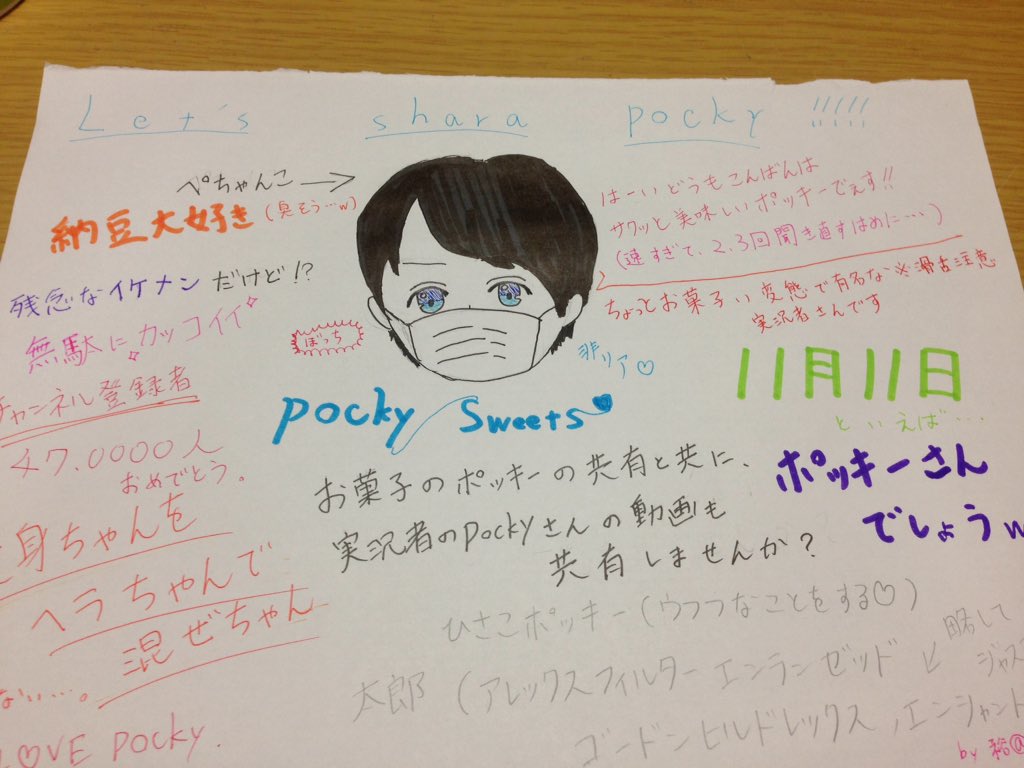 Let's shara pocky !!!!!
ぺちゃんこ→
納豆大好き(臭そう…w)
残念なイケメンだけど!?
無駄にカッコイイ
ぼっち
チャンネル登録者
47.0000人
おめでとう。
身ちゃんを
ヘラちゃんで
混ぜちゃん
ない…。
LOVE pocky.
はーいどうもこんばんは
サクッと美味しいポッキーでぇす!!
(速すぎて、2.3回聞き直すはめに…)
ちょっとお菓子い変態で有名な※滑舌注意
実況者さんです
非リア♡
pocky Sweets
11月11日
といえば…
ポッキーさん
でしょうw
お菓子のポッキーの共有と共に、
実況者のpockyさんの動画も
共有しませんか?
ひさこポッキー(ウフフなことをする♡)
太郎(アレックスフィルターエンランゼッド↙略して
ゴードンヒルドレックス,エンシャント
by